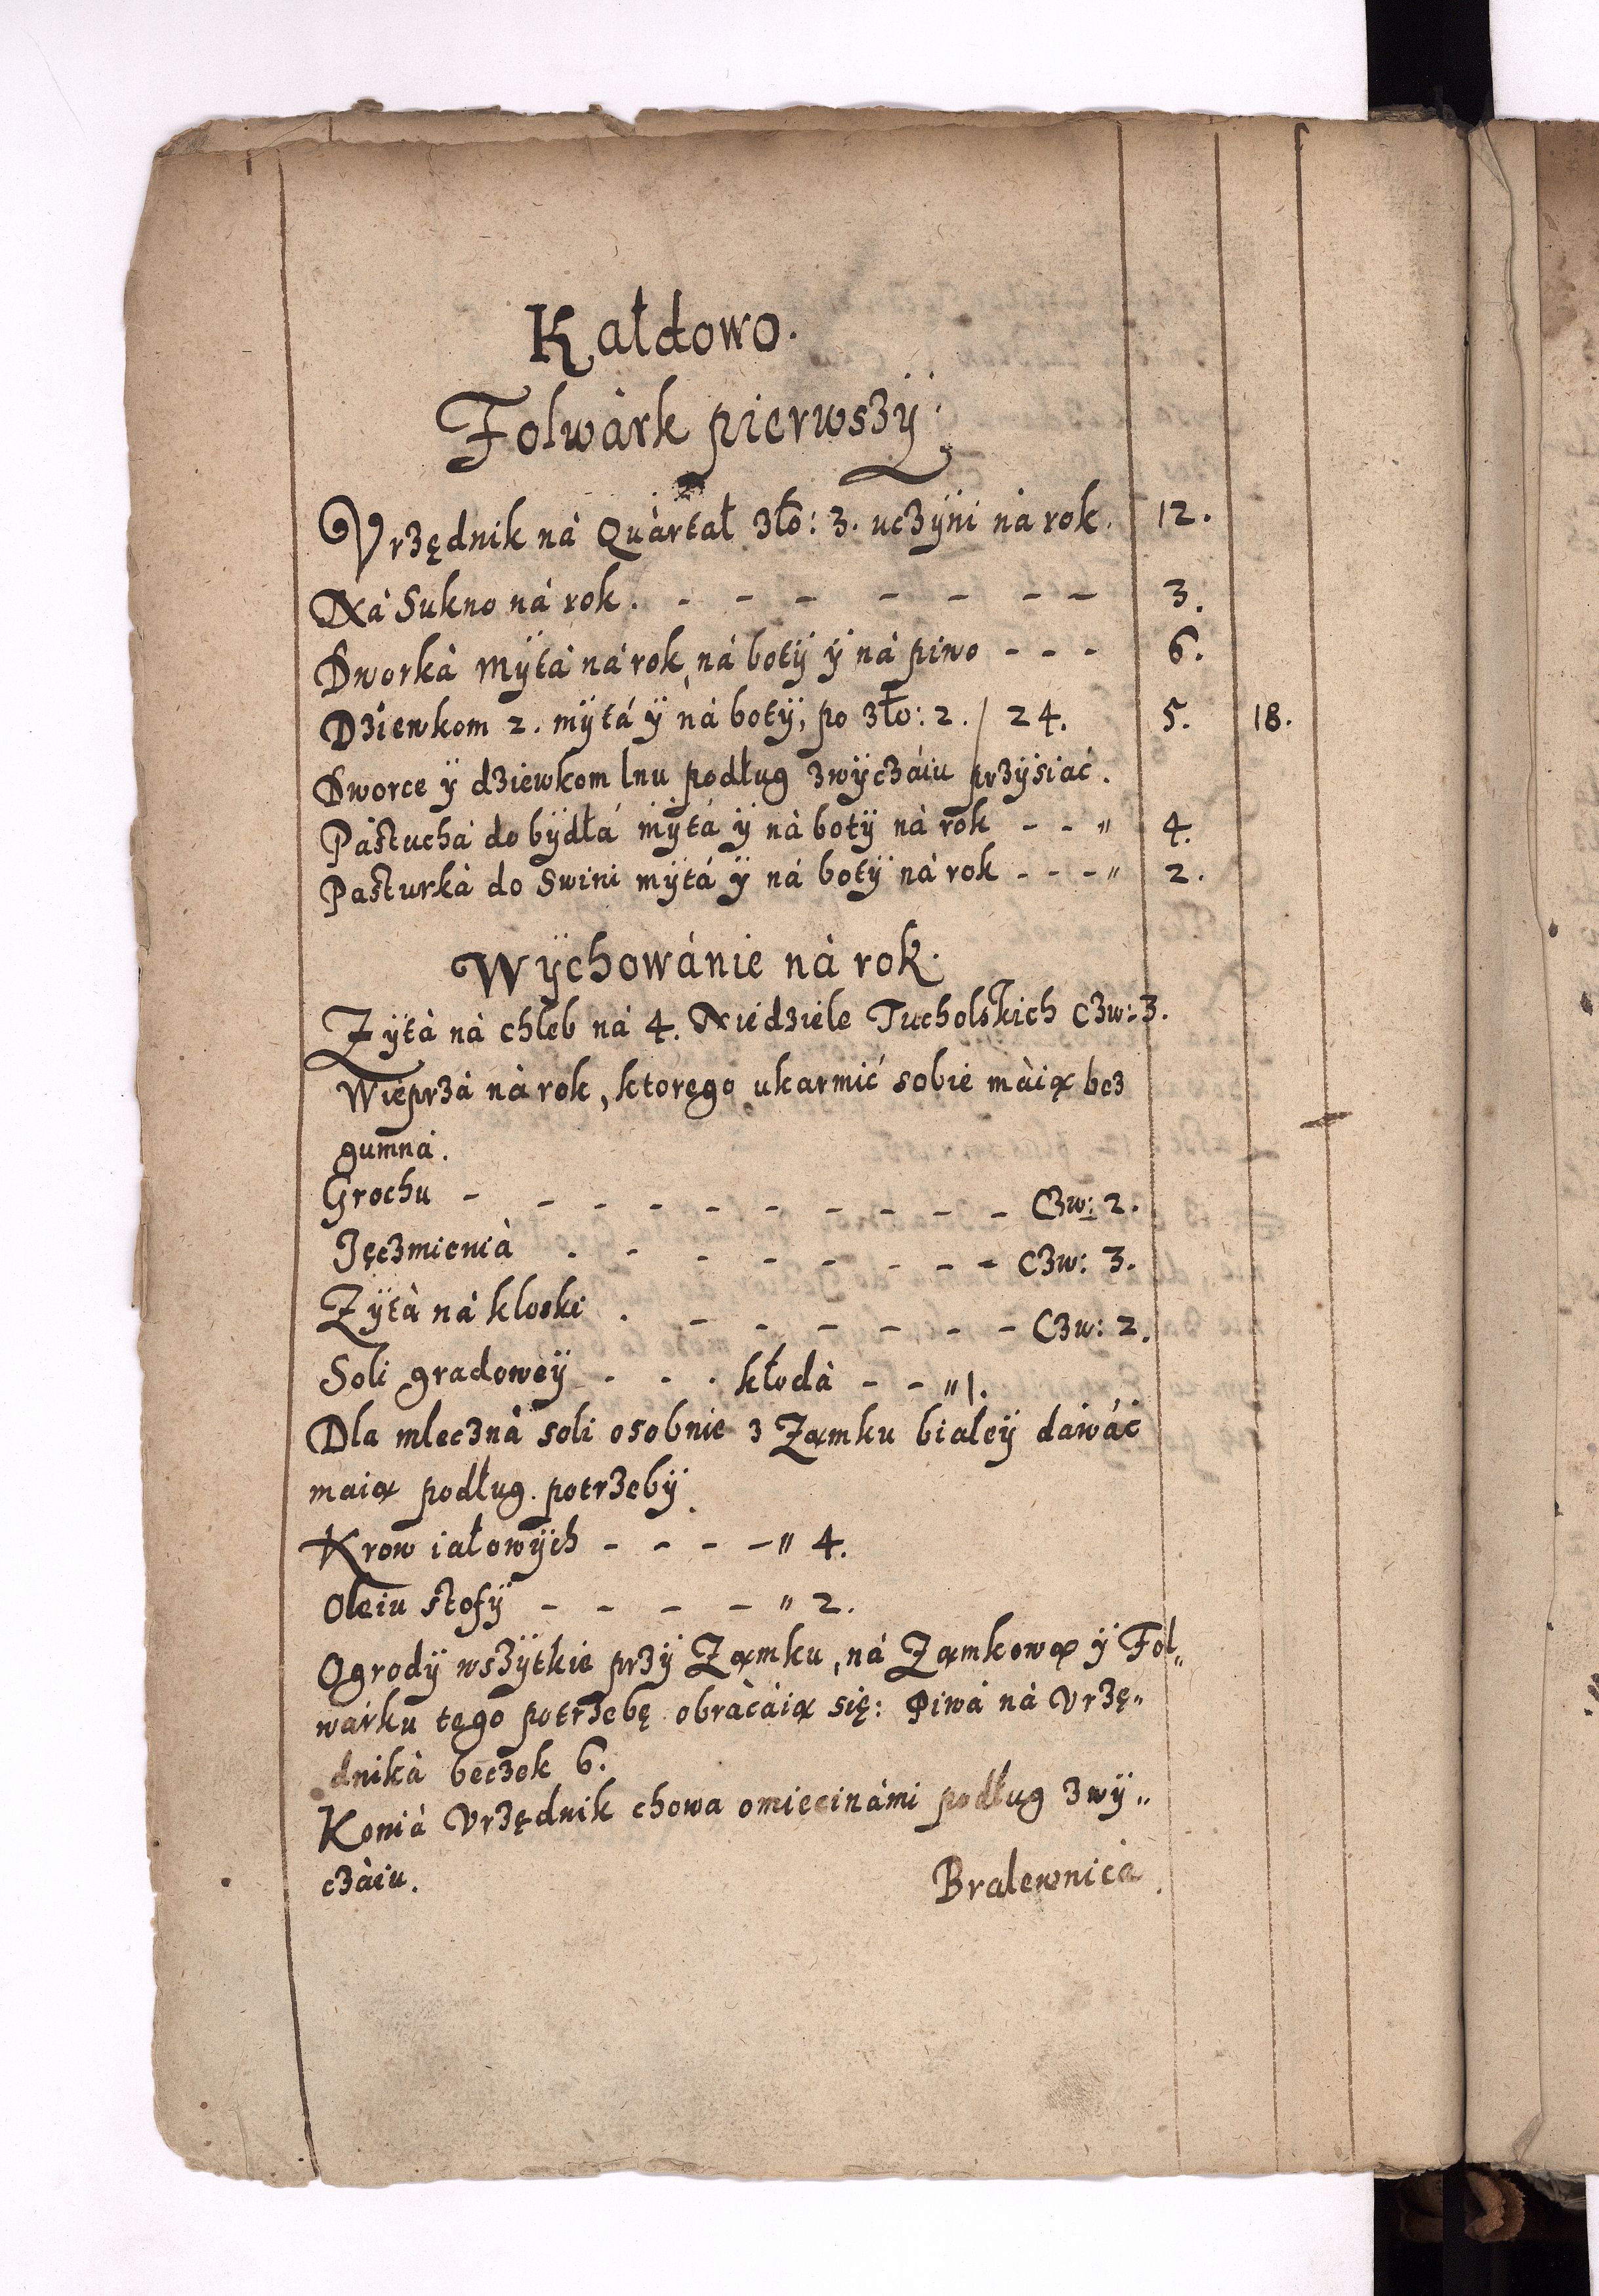 Kałdowo.
Folwàrk pierwszÿ.
Vrzędnik nà Quàrtał zło: 3. uczÿni nà rok. 12.
Nà Sukno nà rok. - - - - - - - 3.
Dworkà Mÿtà nà rok, nà botÿ ÿ nà piwo - - - 6.
Dziewkom 2. mÿtá ÿ nà botÿ, po zło: 2. / 24. 5. 18.
Dworce ÿ dziewkom lnu podług zwÿczáiu przÿsiać.
Pàstuchà do bÿdłá mÿtá ÿ nà botÿ nà rok - - „ 4.
Pasturkà do Swini mÿtá ÿ ná botÿ nà rok - - - „ 2.
Wÿchowánie nà rok.
Zÿtà nà chleb ná 4. Niedziele Tucholskich Czw: 3.
Wieprzà nà rok, ktorego ukarmić sobie màią bez
gumnà.
Grochu - - - - - - - - - - Czw: 2.
Jęczmienià - - - - - - - - Czw: 3.
Zÿtà nà kloski - - - - - - - Czw: 2.
Soli gradoweÿ - - - kłodà - - „ 1.
Dla mlecznà soli osobnie z Zamku białeÿ dàwáć
maią podług potrzebÿ.
Krow iałowÿch - - - - „ 4.
Oleiu stofÿ - - - - „ 2.
Ogrodÿ wszÿtkie przÿ Zamku, ná Zamkową ÿ Fol„
wárku tego potrzebę obràcàią się: Piwà nà Vrzę„
dnikà beczek 6.
Konià Vrzędnik chowa omiecinámi podług zwÿ„
czàiu. Bralewnicà.